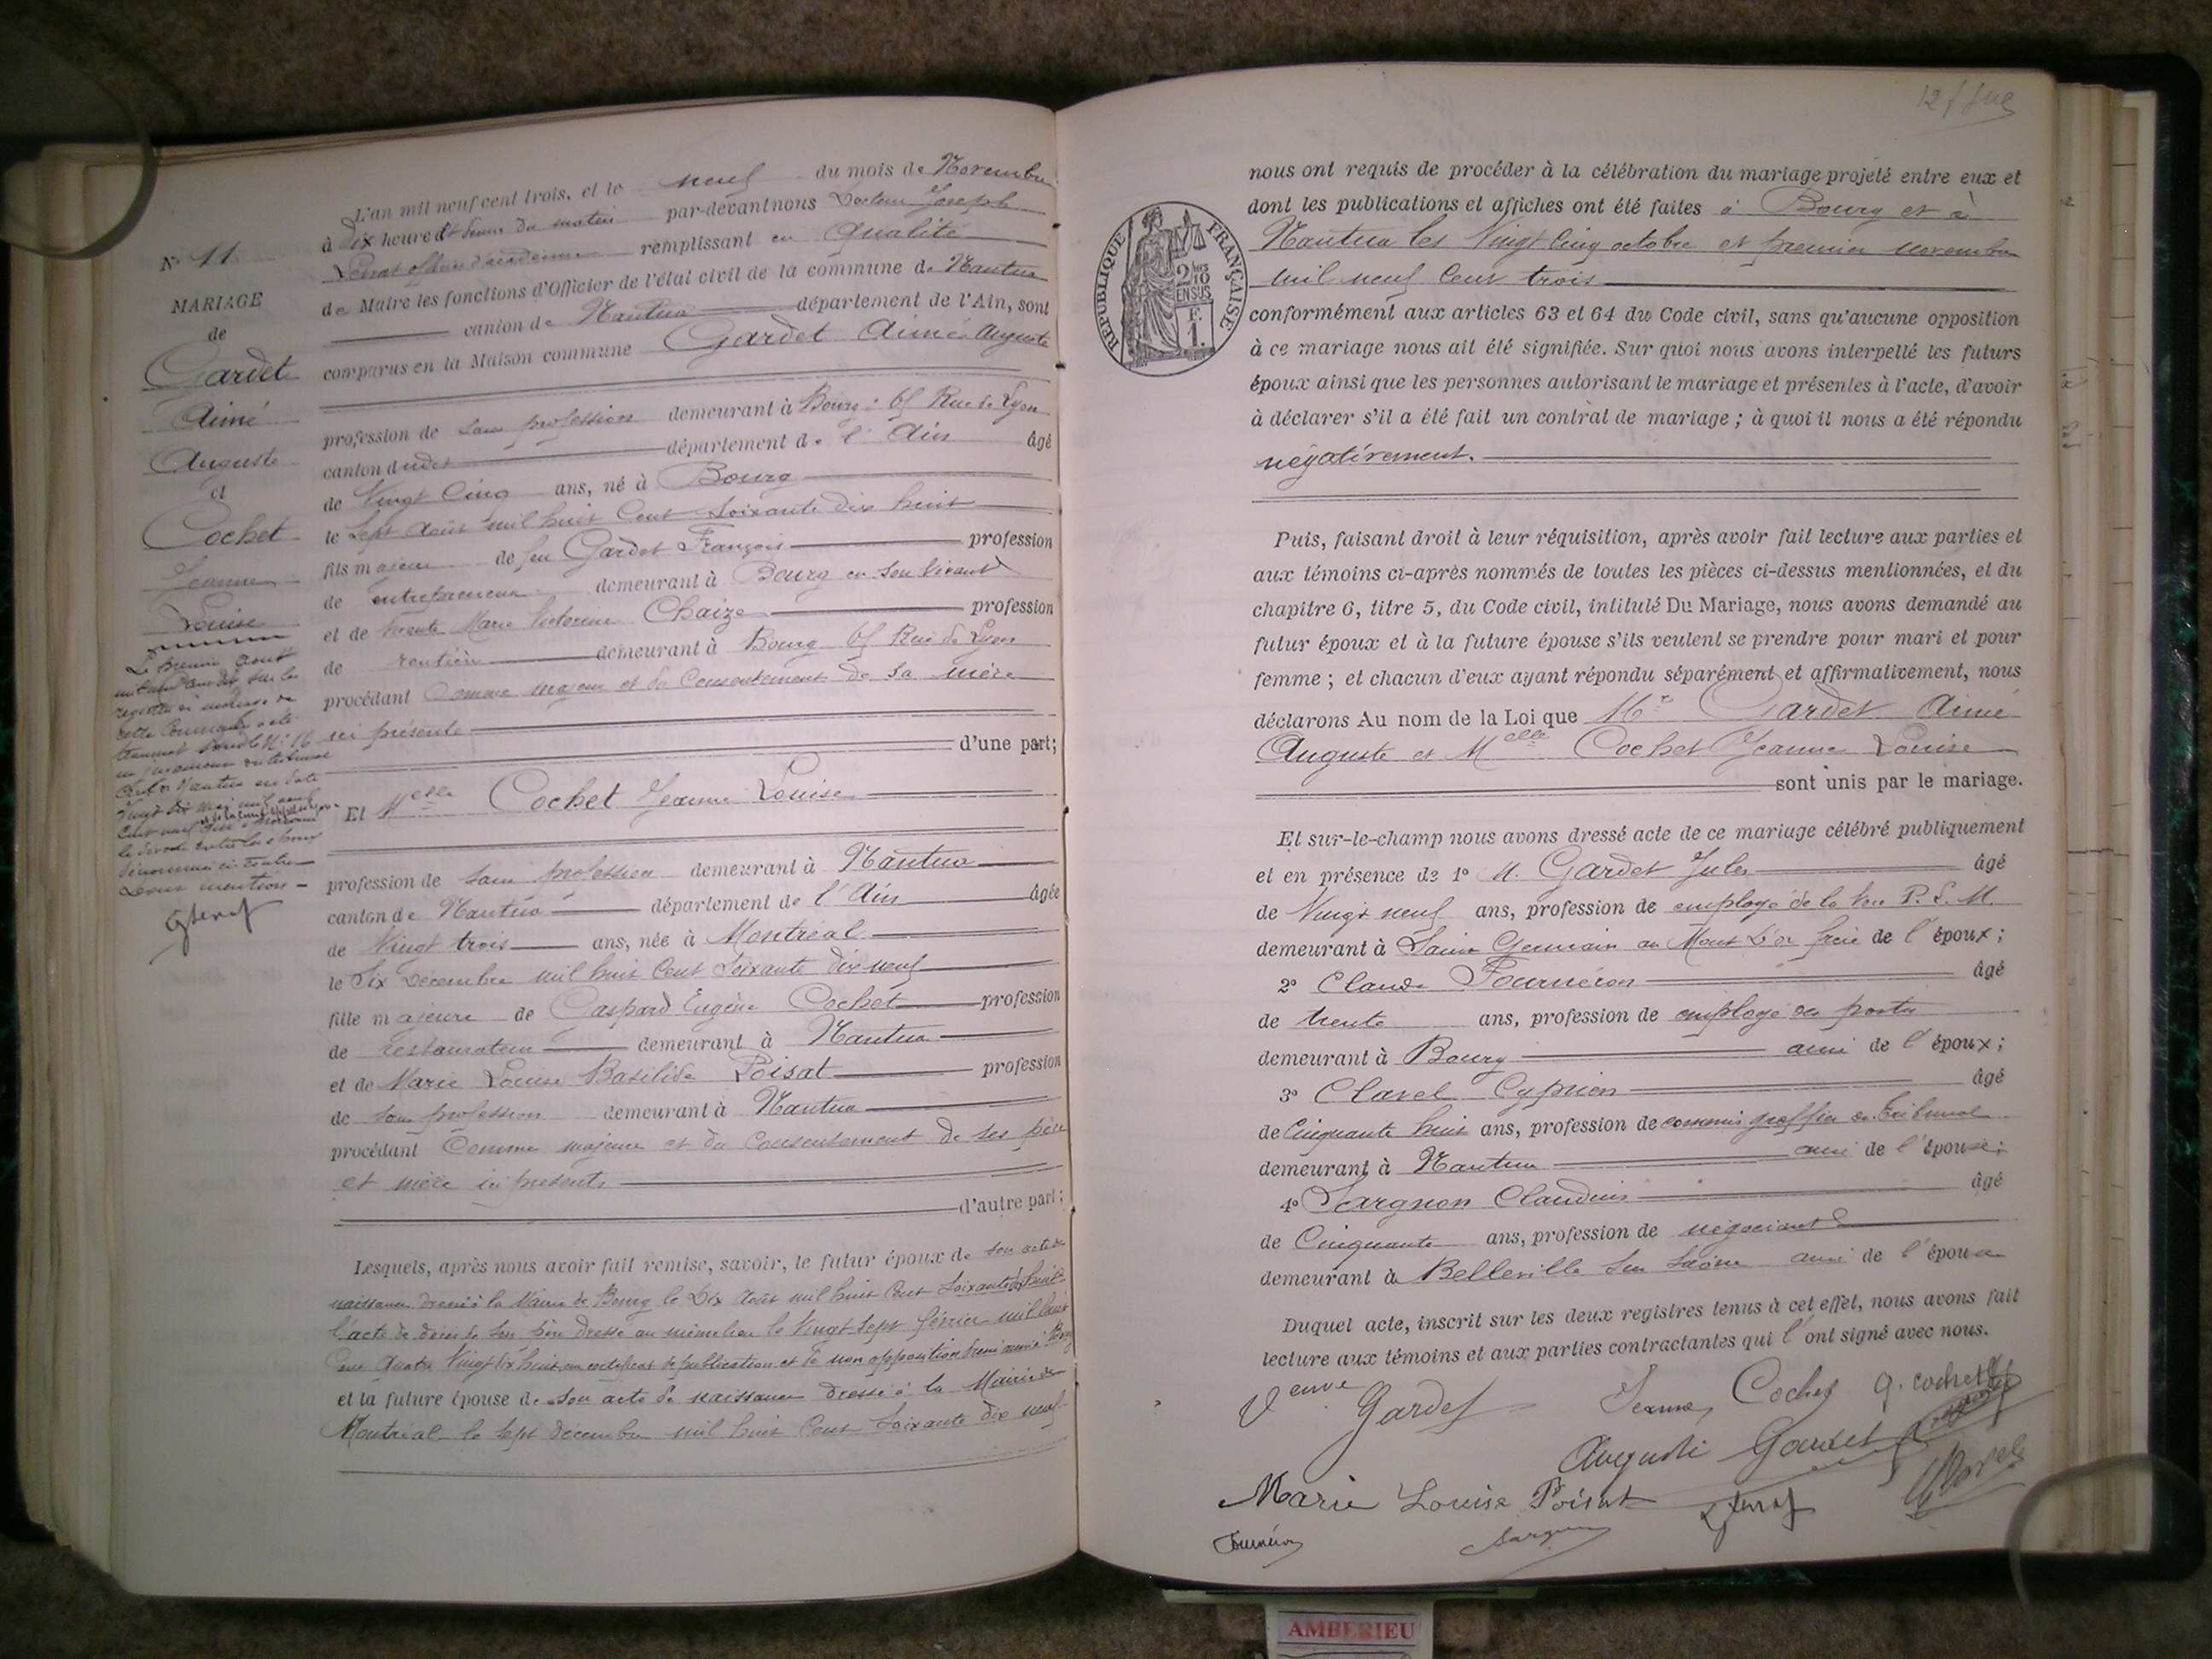 N° 11
MARIAGE
de
Gardet
Aimé
Auguste
et
Cochet
Jeanne
Louise
Le premier août
mil neuf cent dix sur les
registres de mariage de
cette commune a été
transcrit sous le N° 16
un jugement du tribunal
civil de Nantua en date
vingt six mai mil neuf
cent neuf
le divorce entre les époux
dénommés ci-contre
Dont mention
L'an mil neuf cent trois, et le neuf du mois de Novembre
à dix heures du matin par-devant nous Docteur Joseph
officier d'académie remplissant en qualité
de Maire les fonctions d'Officier de l'état civil de la commune de Nantua
canton de Nantua département de l'Ain, sont
comparus en la Maison commune Gardet Aimé Auguste
profession de sans profession demeurant à Bourg Rue de Lyon
canton dudit département de l'Ain âgé
de Vingt Cinq ans, né à Bourg
le Sept Août mil huit Cent Soixante dix huit
fils majeur de feu Gardet François profession
de entrepreneur demeurant à Bourg en son vivant
et de vivante Marie Victorine Chaize profession
de rentière demeurant à Bourg Rue de Lyon
procédant Comme majeur et du Consentement de sa mère
ici présente
d'une part;
Et Melle Cochet Jeanne Louise
profession de sans profession demeurant à Nantua
canton de Nantua département de l'Ain âgée
de Vingt trois ans, née à Montréal
le Six Décembre mil huit Cent Soixante dix neuf
fille majeure de Gaspard Eugène Cochet profession
de restaurateur demeurant à Nantua
et de Marie Louise Basilide Poisat profession
de sans profession demeurant à Nantua
procédant Comme majeure et du Consentement de ses père
et mère ici présents
d'autre part;
Lesquels, après nous avoir fait remise, savoir, le futur époux de son acte de
naissance dressé à la Mairie de Bourg le Dix Août mil huit Cent Soixante dix huit
l'acte de décès de son père dressé au même lieu le Vingt Sept février mil huit
Cent Quatre Vingt dix huit, un certificat de publication et de non opposition
et la future épouse de son acte de naissance dressé à la Mairie de
Montréal le sept décembre mil huit Cent Soixante dix neuf
nous ont requis de procéder à la célébration du mariage projeté entre eux et
dont les publications et affiches ont été faites à Bourg et à
Nantua les Vingt Cinq octobre et premier novembre
mil neuf Cent trois
REPUBLIQUE FRANÇAISE
2/10
EN SUS
F.
1.
conformément aux articles 63 et 64 du Code civil, sans qu'aucune opposition
à ce mariage nous ait été signifiée. Sur quoi nous avons interpellé les futurs
époux ainsi que les personnes autorisant le mariage et présentes à l'acte, d'avoir
à déclarer s'il a été fait un contrat de mariage ; à quoi il nous a été répondu
négativement.
Puis, faisant droit à leur réquisition, après avoir fait lecture aux parties et
aux témoins ci-après nommés de toutes les pièces ci-dessus mentionnées, et du
chapitre 6, titre 5, du Code civil, intitulé Du Mariage, nous avons demandé au
futur époux et à la future épouse s'ils veulent se prendre pour mari et pour
femme ; et chacun d'eux ayant répondu séparément et affirmativement, nous
déclarons Au nom de la Loi que Mr Gardet Aimé
Auguste et Melle Cochet Jeanne Louise
sont unis par le mariage.
Et sur-le-champ nous avons dressé acte de ce mariage célébré publiquement
et en présence de 1° M. Gardet Jules âgé
de Vingt neuf ans, profession de employé de la P. L. M.
demeurant à Saint Germain au Mont d'or frère de l'époux ;
2° Claude Fournéron âgé
de trente ans, profession de employé des postes
demeurant à Bourg ami de l'époux ;
3° Clavel Cyprien âgé
de Cinquante huit ans, profession de commis greffier du tribunal
demeurant à Nantua ami de l'épouse ;
4° Sargnon Claudius âgé
de Cinquante ans, profession de négociant
demeurant à Belleville sur Saône ami de l'épouse
Duquel acte, inscrit sur les deux registres tenus à cet effet, nous avons fait
lecture aux témoins et aux parties contractantes qui l'ont signé avec nous.
Veuve Gardet Jeanne Cochet G. Cochet
Auguste Gardet
Marie Louise Poisat
Fournéron
AMBERIEU